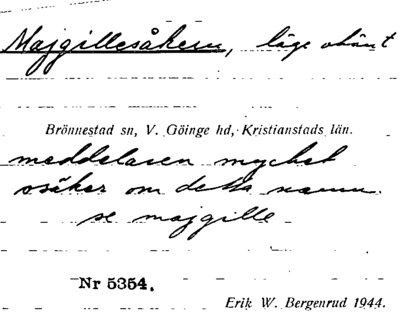 Majgillesåkern, läge okänt
Brönnestad sn, V. Göinge hd, Kristianstads län.
meddelaren mycket
osäker om detta namn.
se majgille
Nr 5354.
Erik W. Bergenrud 1944.